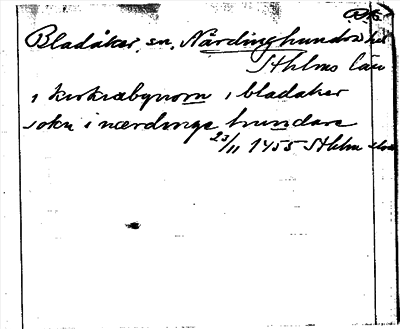 Bladåker, sn, Närdinghundra hd
Sthlms län
i kirkiabynom i bladaker
sokn i nærdinge hundare
23/11 1455 Sthlm